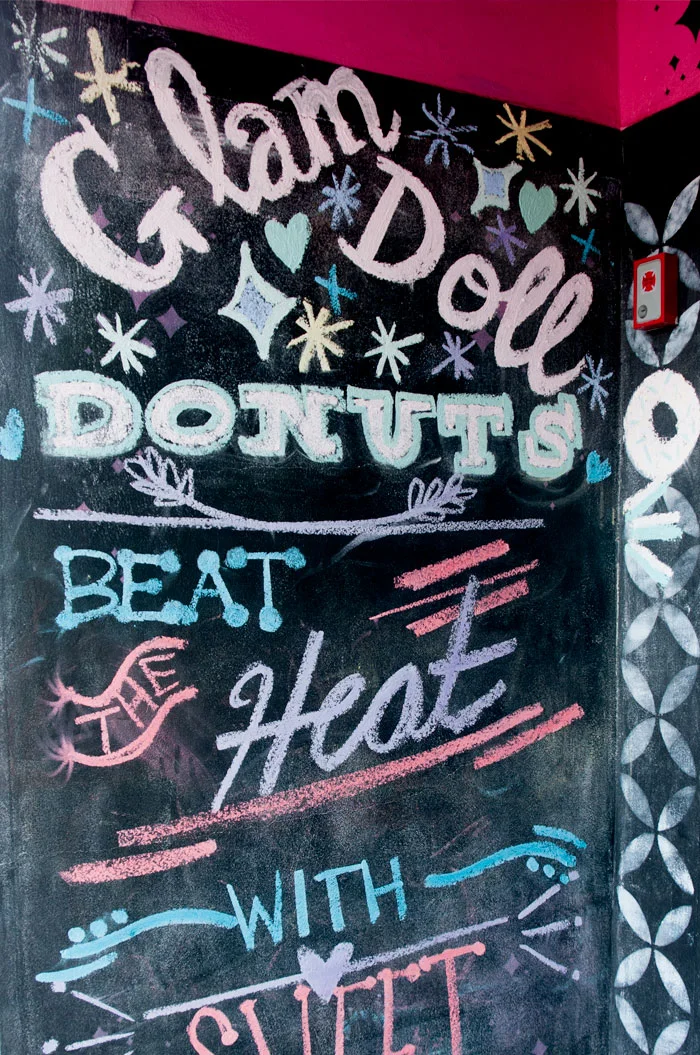 Glam
Doll
DONUTS
BEAT
THE
Heat
WITH
SWEET